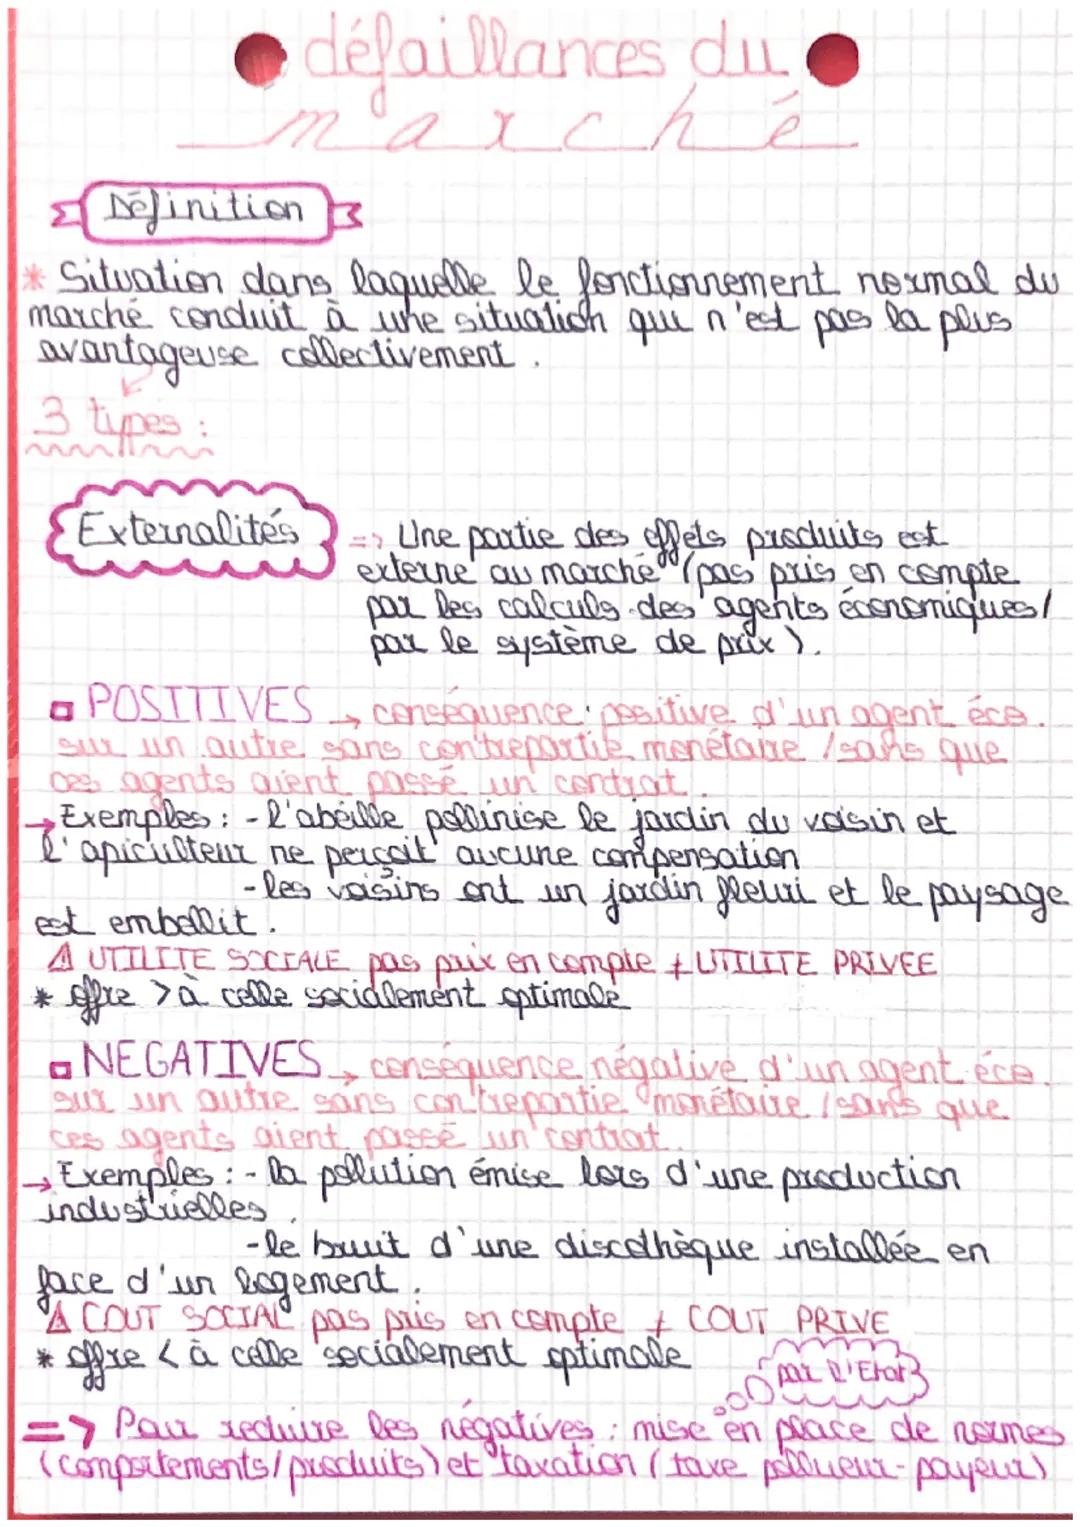 défaillances du
marché
Définition
* Situation dans laquelle le fonctionnement normal du
marché conduit à une situation qui n'est pas la plus
avantageuse collectivement.
3 types :
Externalités
=> Une partie des effets produits est
externe au marché (pas pris en compte
par les calculs des agents économiques/
par le système de prix).
POSITIVES → conséquence positive d'un agent éco.
sur un autre sans contrepartie monétaire / sans que
ces agents aient passé un contrat.
→ Exemples : - l'abeille pollinise le jardin du voisin et
l'apiculteur ne perçoit aucune compensation
- les voisins ont un jardin fleuri et le paysage
est embellit.
⚠ UTILITE SOCIALE pas prix en compte ≠ UTILITE PRIVEE
* offre > à celle socialement optimale
NEGATIVES → conséquence négative d'un agent éco.
sur un autre sans contrepartie monétaire / sans que
ces agents aient passé un contrat.
→ Exemples : - la pollution émise lors d'une production
industrielles.
- le bruit d'une discothèque installée en
face d'un logement.
⚠ COUT SOCIAL pas pris en compte ≠ COUT PRIVE
* offre < à celle socialement optimale
par l'Etat
=> Pour reduire les négatives : mise en place de normes
(comportements/produits) et taxation (taxe pollueur-payeur)